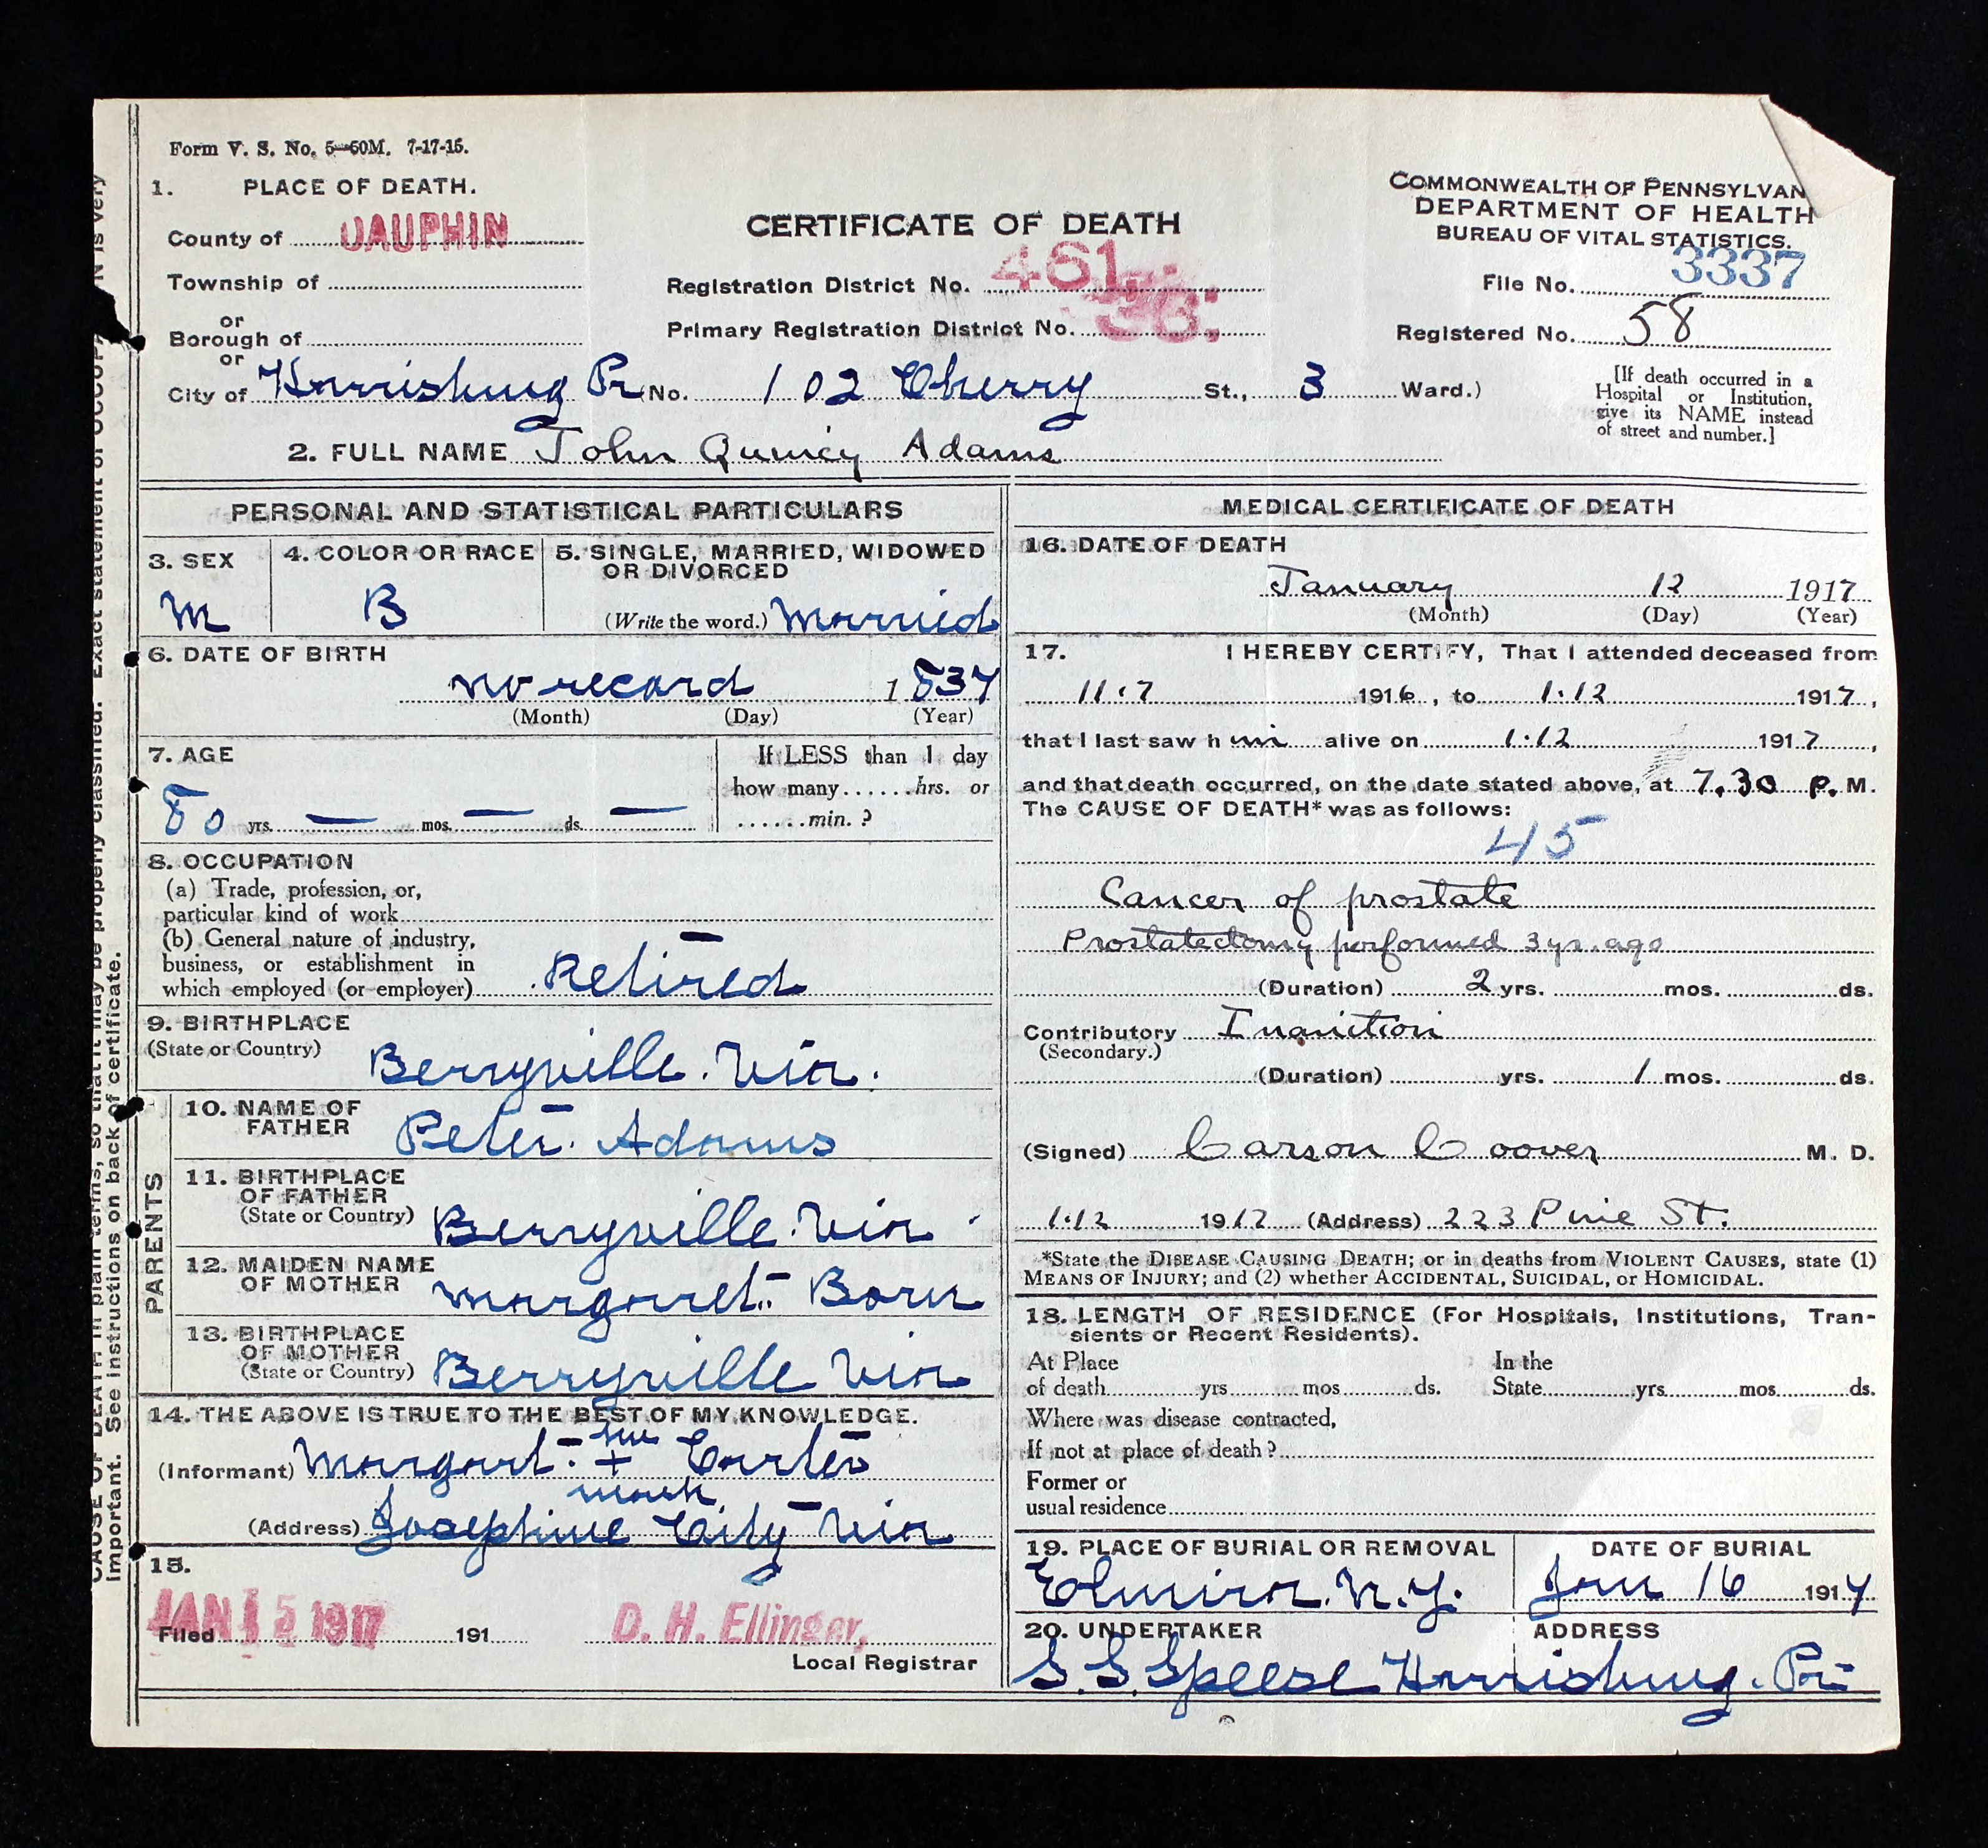 Form V. S. No. 5—60M. 7-17-15.
1. PLACE OF DEATH.
County of DAUPHIN
Township of
or
Borough of
or
City of Harrisburg Pa No. 102 Cherry St., 3 Ward.)
CERTIFICATE OF DEATH
Registration District No. 461
Primary Registration District No. 36
COMMONWEALTH OF PENNSYLVAN
DEPARTMENT OF HEALTH
BUREAU OF VITAL STATISTICS.
File No. 3337
Registered No. 58
[If death occurred in a
Hospital or Institution,
give its NAME instead
of street and number.]
2. FULL NAME John Quincy Adams
PERSONAL AND STATISTICAL PARTICULARS
3. SEX
M
4. COLOR OR RACE
B
5. SINGLE, MARRIED, WIDOWED
OR DIVORCED
(Write the word.) Married
6. DATE OF BIRTH
no record 1837
(Month) (Day) (Year)
7. AGE
80 yrs. — mos. — ds. —
If LESS than 1 day
how many......hrs. or
......min.?
8. OCCUPATION
(a) Trade, profession, or,
particular kind of work
(b) General nature of industry,
business, or establishment in
which employed (or employer) Retired
9. BIRTHPLACE
(State or Country)
Berryville. Vir.
PARENTS
10. NAME OF
FATHER
Peter. Adams
11. BIRTHPLACE
OF FATHER
(State or Country) Berryville. Vir
12. MAIDEN NAME
OF MOTHER
Margaret. Born
13. BIRTHPLACE
OF MOTHER
(State or Country) Berryville Vir
14. THE ABOVE IS TRUE TO THE BEST OF MY KNOWLEDGE.
her
(Informant) Margart + Carter
mark
(Address) Josephine City Vir
15.
JAN 15 1917
Filed 191
D. H. Ellinger,
Local Registrar
MEDICAL CERTIFICATE OF DEATH
16. DATE OF DEATH
January 12 1917
(Month) (Day) (Year)
17. I HEREBY CERTIFY, That I attended deceased from
11.7 1916, to 1.12 1917,
that I last saw him alive on 1.12 1917,
and that death occurred, on the date stated above, at 7.30 P. M.
The CAUSE OF DEATH* was as follows:
45
Cancer of prostate
Prostatectomy performed 3 yrs. ago
(Duration) 2 yrs. mos. ds.
Contributory Inanition
(Secondary.)
(Duration) yrs. 1 mos. ds.
(Signed) Carson Coover M. D.
1.12 1917 (Address) 223 Pine St.
*State the DISEASE CAUSING DEATH; or in deaths from VIOLENT CAUSES, state (1)
MEANS OF INJURY; and (2) whether ACCIDENTAL, SUICIDAL, or HOMICIDAL.
18. LENGTH OF RESIDENCE (For Hospitals, Institutions, Tran-
sients or Recent Residents).
At Place In the
of death yrs mos ds. State yrs mos ds.
Where was disease contracted,
If not at place of death?
Former or
usual residence
19. PLACE OF BURIAL OR REMOVAL
Elmira. N.Y.
DATE OF BURIAL
Jan 16 1917
20. UNDERTAKER
ADDRESS
S. S. Speese Harrisburg. Pa
CAUSE OF DEATH in plain terms, so that it may be properly classified. Exact statement of OCCUPA N is very
important. See instructions on back of certificate.